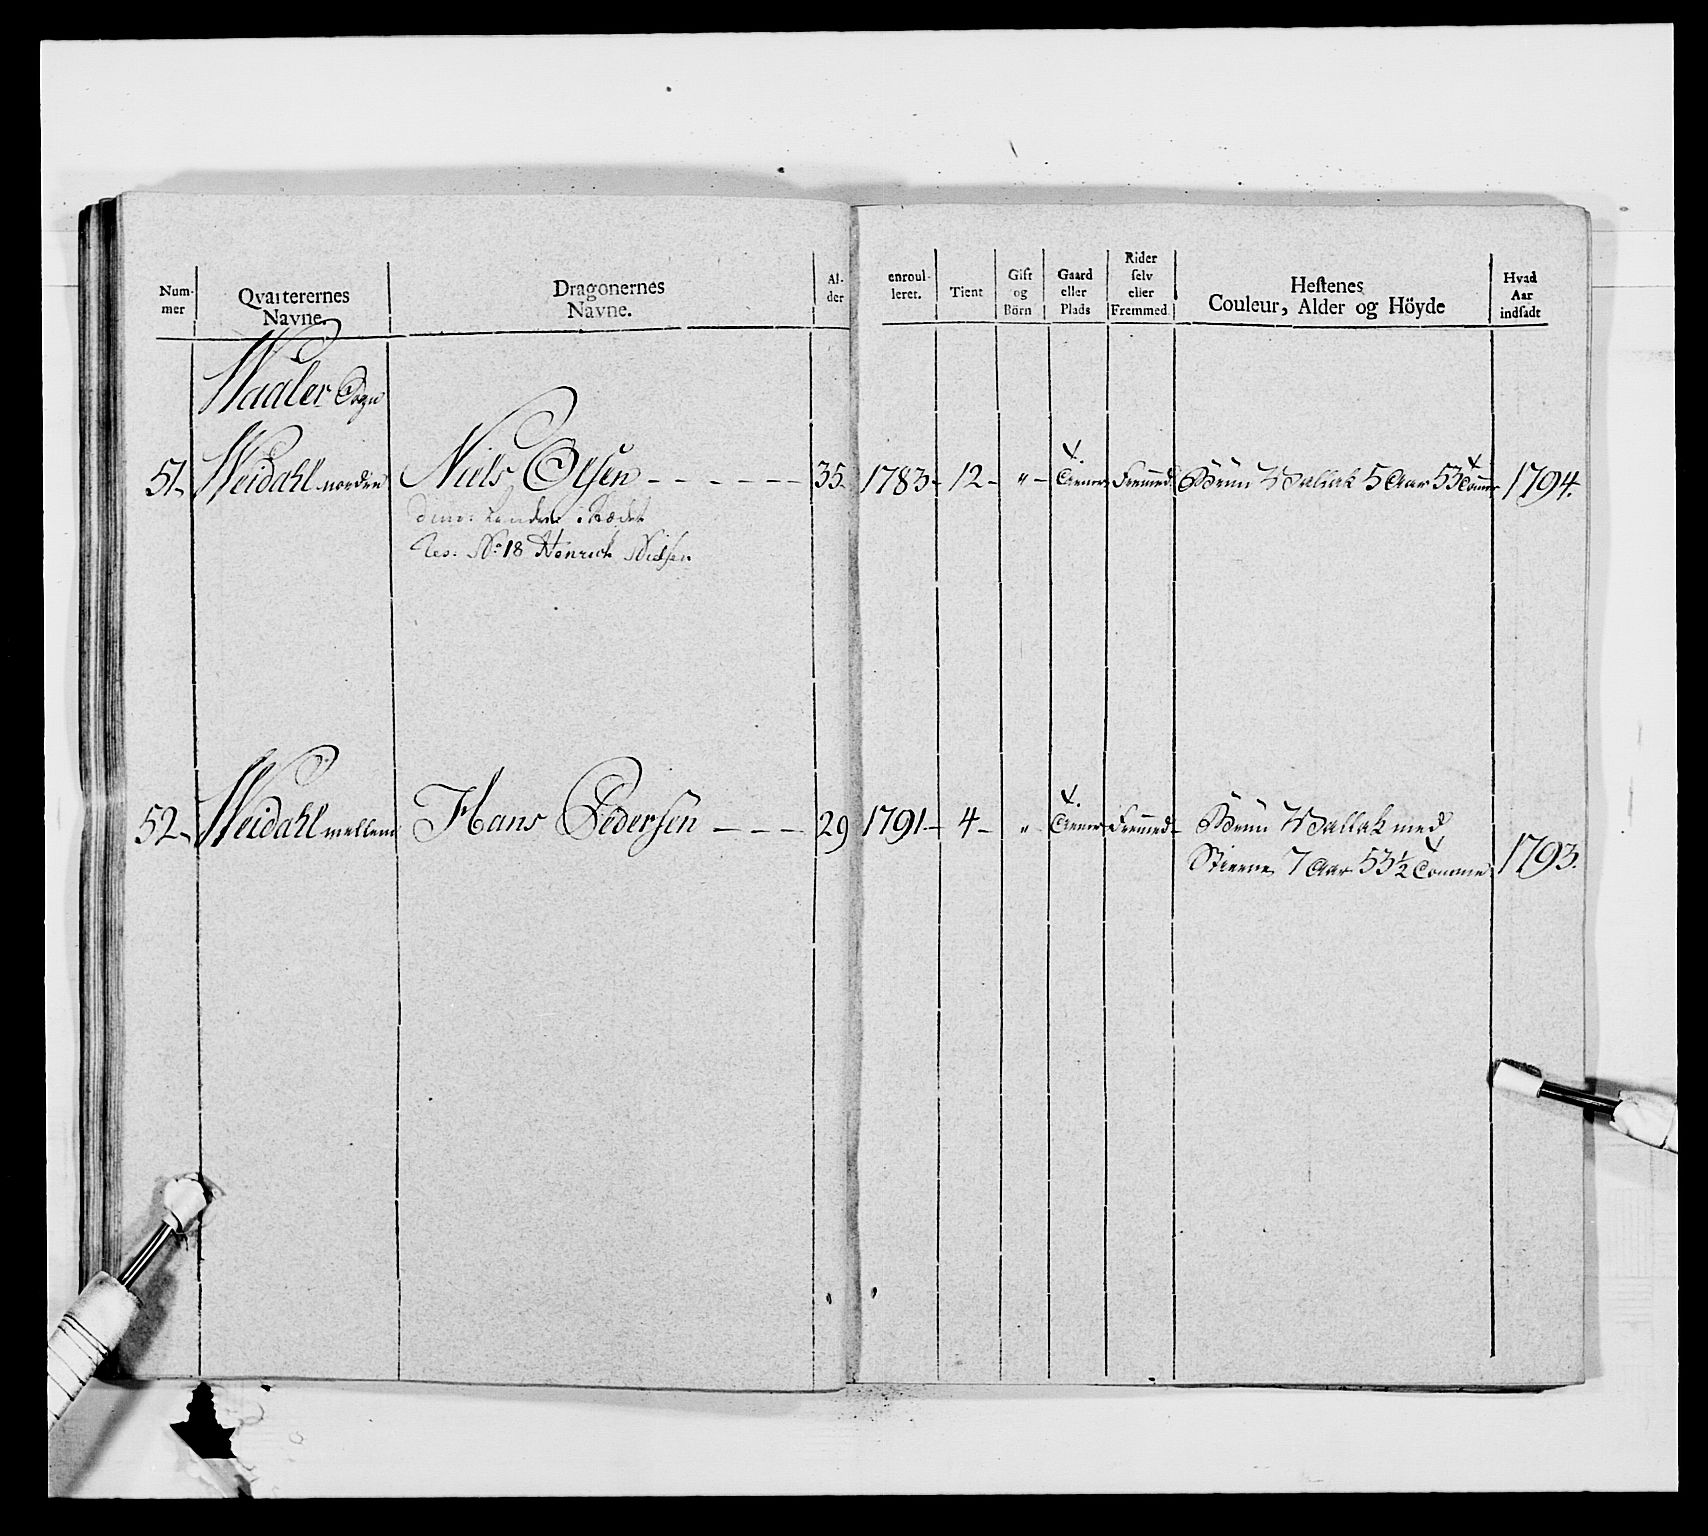 Num-
mer
Qvarterernes
Navne.
Dragonernes
Navne.
Al-
der
enroul-
leret.
Tient
Gift
og
Börn
Gaard
eller
Plads
Rider
selv
eller
Fremmed
Hestenes
Couleur, Alder og Höyde
Hvad
Aar
indsadt
Waaler Sogn
51- Weidahl nordre Niels Olsen - - - - - - - 35. 1783- 12- " - Tiener Fremmed Bruun Wallak 5 Aar 53 Tomme 1794.
Res: No 18 Henrich Nielsen
52- Weidahl mellem Hans Pedersen - - - 29 1791- 4- " - Tiener Fremmed- Bruun Wallak med
Stierne 7 Aar 53 1/2 Tomme 1793.